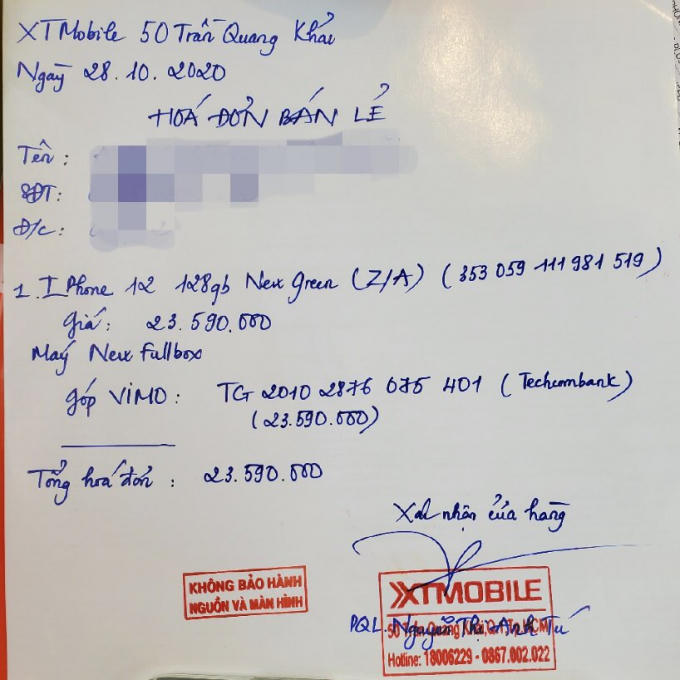 XTMobile 50 Trần Quang Khải
Ngày 28.10.2020
HOÁ ĐƠN BÁN LẺ
Tên :
SĐT:
Đ/c :
1. IPhone 12 128gb New green (Z/A) (353 059 111 981 519)
giá: 23.590.000
Máy New Fullbox
góp VIMO : TG 2010 2876 075 401 (Techcombank)
(23.590.000)
Tổng hoá đơn : 23.590.000
Xác nhận cửa hàng
KHÔNG BẢO HÀNH
NGUỒN VÀ MÀN HÌNH
XTMOBILE
PQL. Nguyễn Thị Anh Tú
50 Trần Quang Khải, Q.1, Tp.HCM
Hotline: 18006229 - 0867.002.022